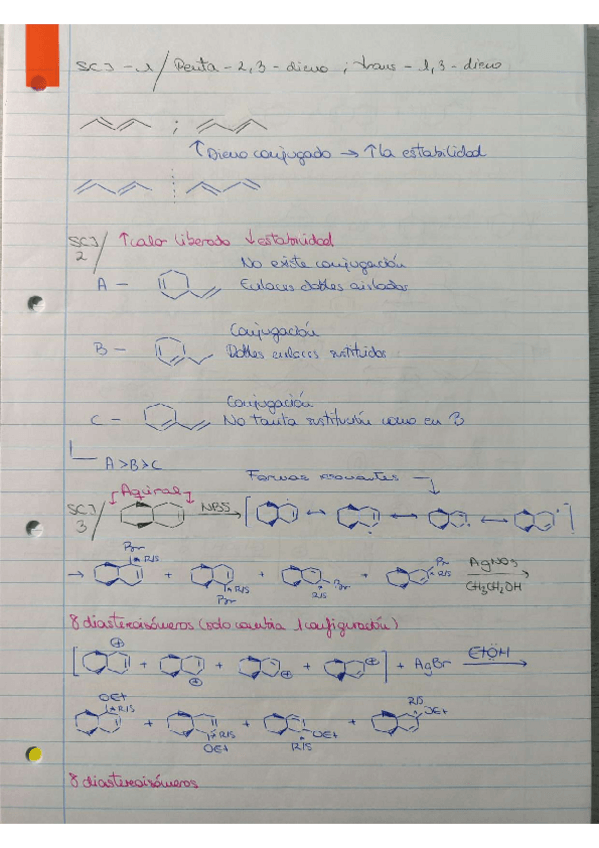 SCJ-1/ Penta-2,3-dieno ; trans-1,3-dieno
;
↑ Dieno conjugado → ↑ la estabilidad
SCJ 2/ ↑ calor liberado ↓ estabilidad
No existe conjugación
A - Enlaces dobles aislados
Conjugación
B - Dobles enlaces sustituidos
Conjugación
C - No tanta sustitución como en B
A>B>C
Formas resonantes
Aquiral
SCJ 3/ NBS → [ ↔ ↔ ↔ ]
Br R/S Br R/S
→ + + + AgNO3
R/S Br R/S Br CH3CH2OH
8 diastereoisómeros (solo cambia 1 configuración)
[ ⊕ + ⊕ + ⊕ + ⊕ ] + AgBr EtÖH →
OEt R/S R/S OEt
+ + +
R/S OEt OEt R/S
8 diastereoisómeros